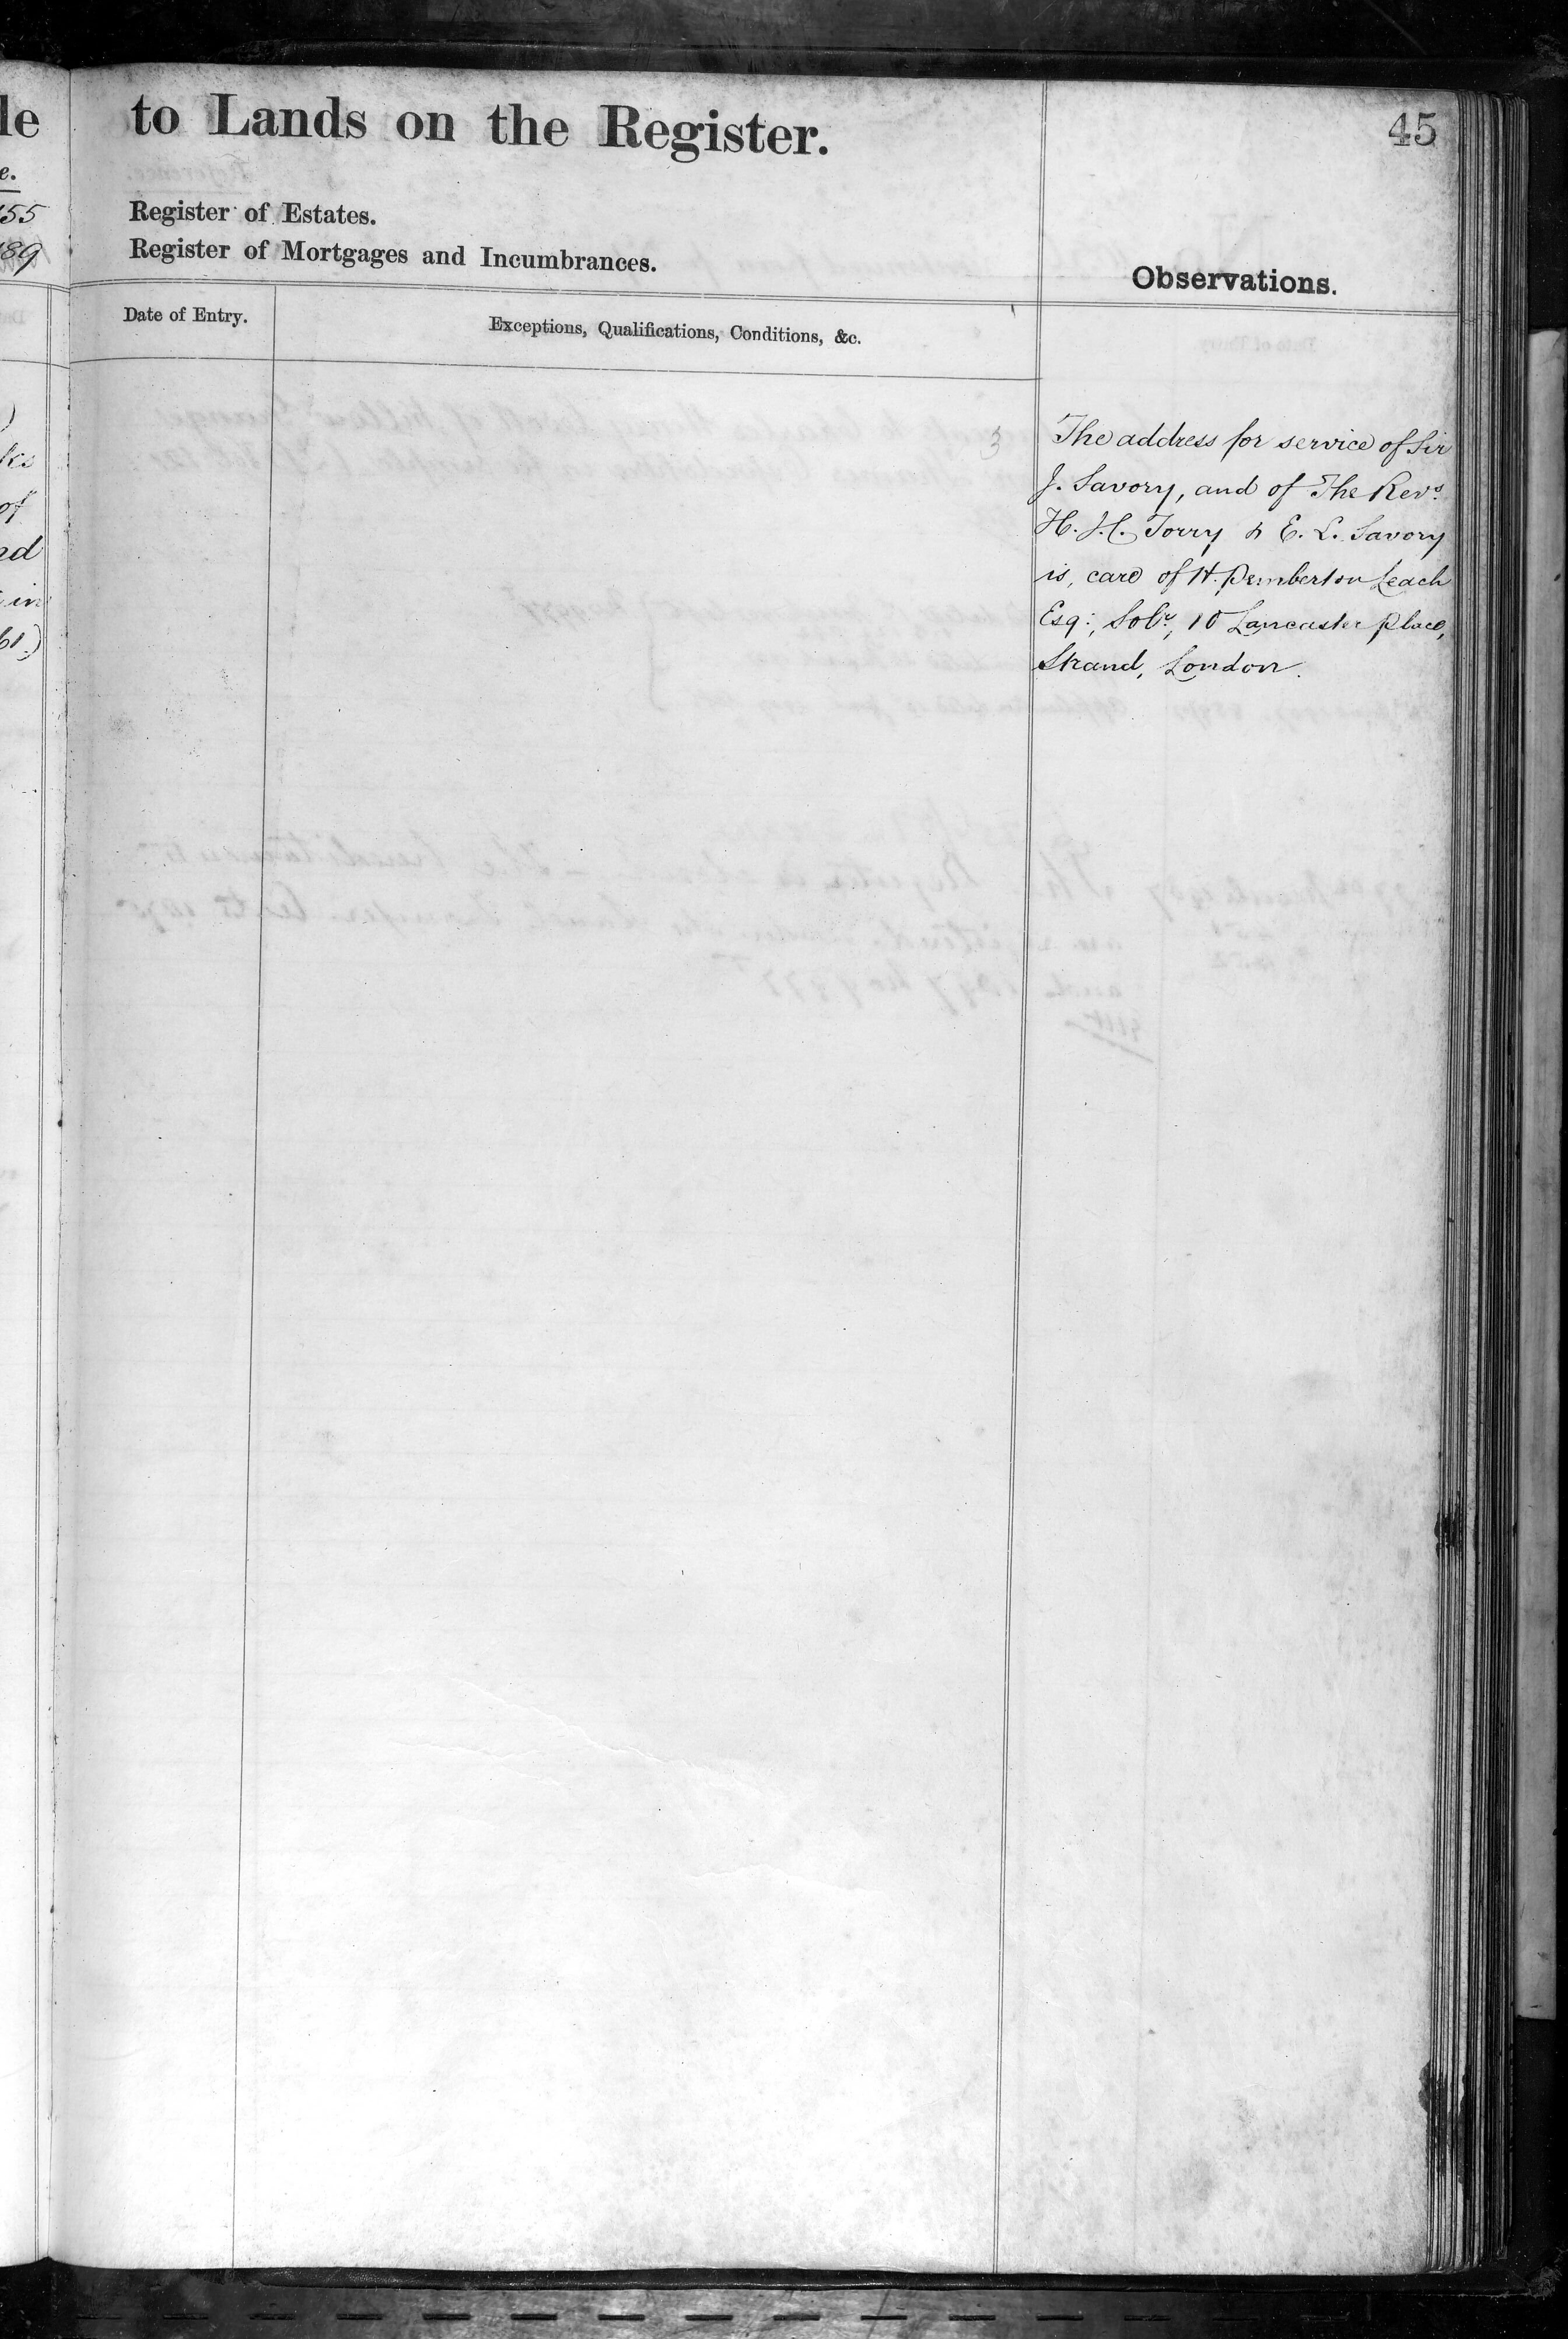 le
to Lands on the Register.
45
e.
55
89
Register of Estates.
Register of Mortgages and Incumbrances.
Observations.
Date of Entry.
Exceptions, Qualifications, Conditions, &c.
3
The address for service of Sir
J. Savory, and of The Revs.
H. J. C. Torry & E. L. Savory
is, care of H. Pemberton Leach
Esq:, Solr, 10 Lancaster Place,
Strand, London.
of
ed
in
61.)